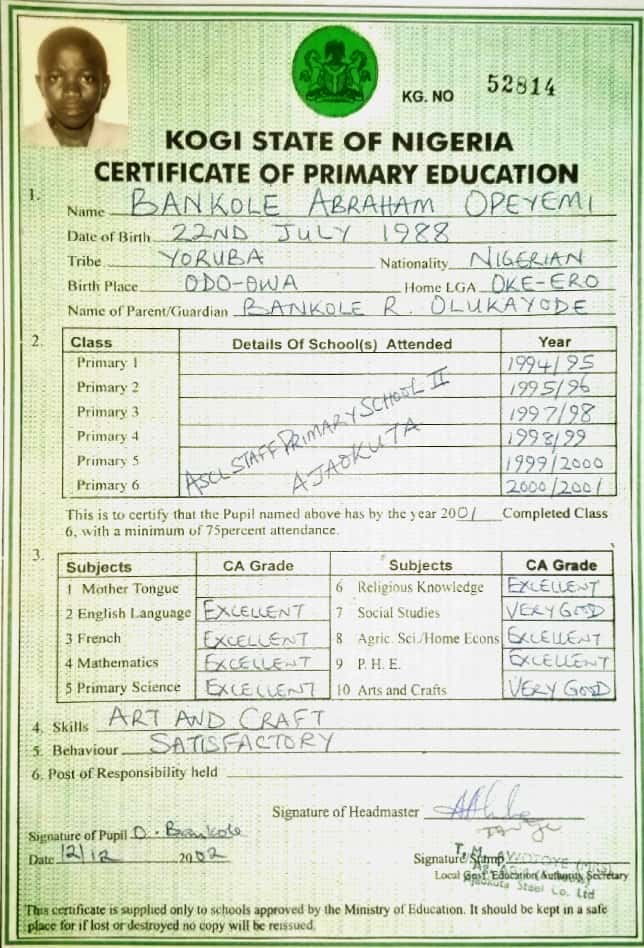 KG. NO 52814
KOGI STATE OF NIGERIA
CERTIFICATE OF PRIMARY EDUCATION
1.
Name BANKOLE ABRAHAM OPEYEMI
Date of Birth 22ND JULY 1988
Tribe YORUBA Nationality NIGERIAN
Birth Place ODO-OWA Home LGA OKE-ERO
Name of Parent/Guardian BANKOLE R. OLUKAYODE
2. Class Details Of School(s) Attended Year
Primary 1 1994/95
Primary 2 1995/96
Primary 3 1997/98
Primary 4 1998/99
Primary 5 1999/2000
Primary 6 2000/2001
ASCL STAFF PRIMARY SCHOOL II
AJAOKUTA
This is to certify that the Pupil named above has by the year 2001 Completed Class
6, with a minimum of 75percent attendance.
3. Subjects CA Grade Subjects CA Grade
1 Mother Tongue 6 Religious Knowledge EXCELLENT
2 English Language EXCELLENT 7 Social Studies VERY GOOD
3 French EXCELLENT 8 Agric. Sci./Home Econs EXCELLENT
4 Mathematics EXCELLENT 9 P. H. E. EXCELLENT
5 Primary Science EXCELLENT 10 Arts and Crafts VERY GOOD
4. Skills ART AND CRAFT
5. Behaviour SATISFACTORY
6. Post of Responsibility held
Signature of Headmaster
Signature of Pupil O. Bankole
Date 12/12 2002
Signature/Stamp T. M. AWOTOYE (MRS)
Local Govt. Education Authority Secretary
Ajaokuta Steel Co. Ltd
This certificate is supplied only to schools approved by the Ministry of Education. It should be kept in a safe
place for if lost or destroyed no copy will be reissued.